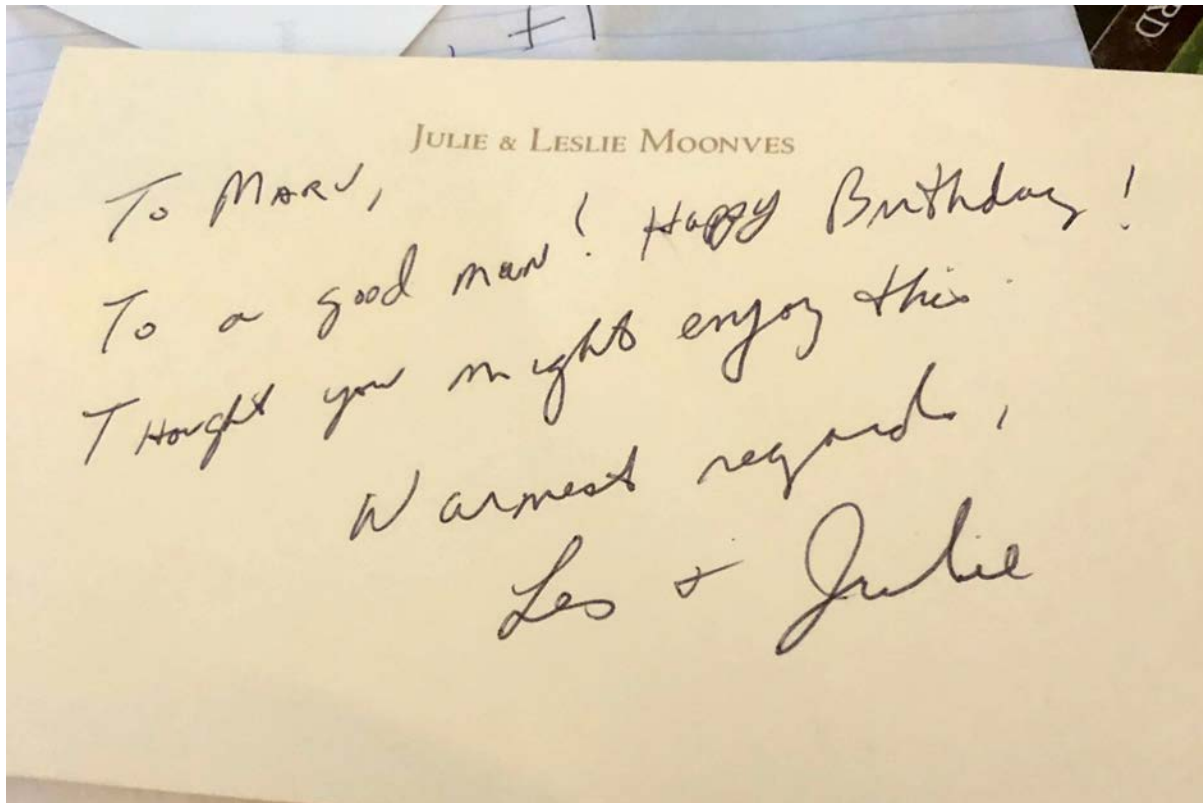 RD
JULIE & LESLIE MOONVES
To MARV,
To a good man! Happy Birthday!
Thought you might enjoy this.
Warmest regards,
Les + Julie